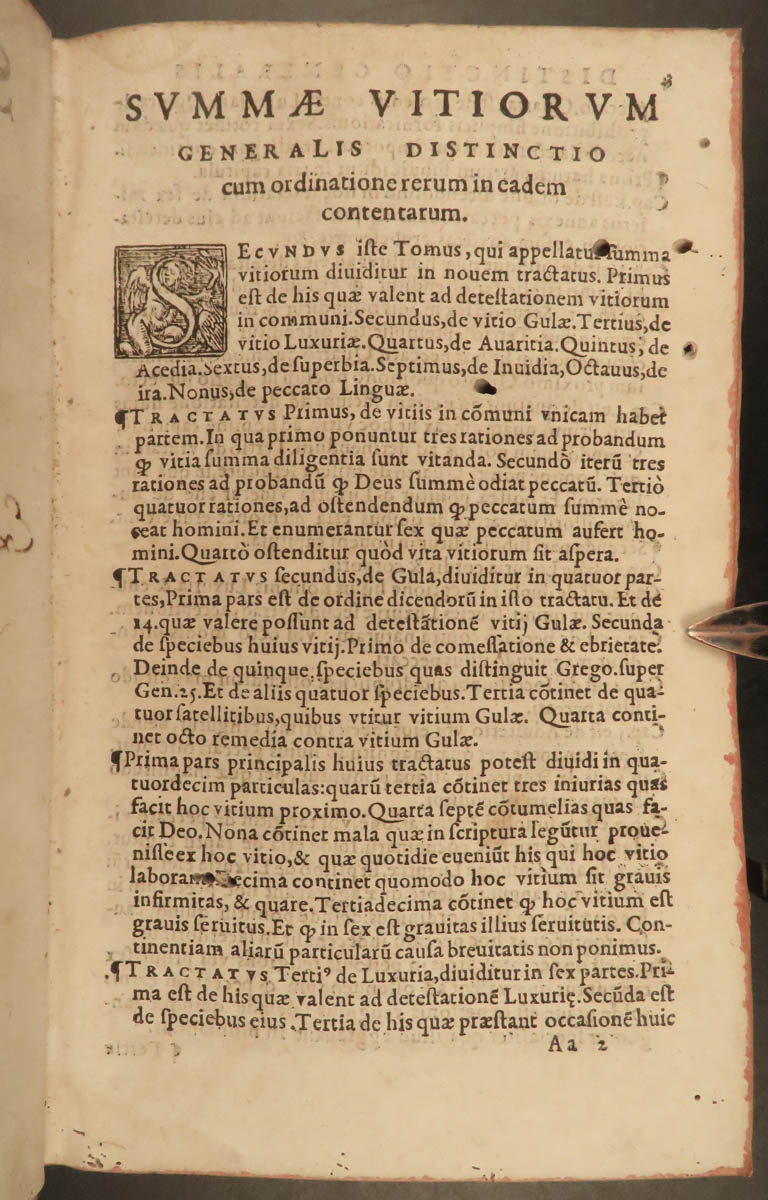 SVMMÆ VITIORVM
GENERALIS DISTINCTIO
cum ordinatione rerum in eadem
contentarum.
SECVNDVS iſte Tomus, qui appellatur ſumma
vitiorum diuiditur in nouem tractatus. Primus
eſt de his quæ valent ad deteſtationem vitiorum
in communi.Secundus,de vitio Gulæ.Tertius,de
vitio Luxuriæ.Quartus,de Auaritia.Quintus, de
Acedia.Sextus,de ſuperbia.Septimus,de Inuidia,Octauus,de
ira.Nonus,de peccato Linguæ.
¶TRACTATVS Primus, de vitiis in cõmuni vnicam habet
partem.In qua primo ponuntur tres rationes ad probandum
ꝙ vitia ſumma diligentia ſunt vitanda. Secundò iterũ tres
rationes ad probandũ ꝙ Deus ſummè odiat peccatũ. Tertiò
quatuor rationes,ad oſtendendum ꝙ peccatum ſummè no-
ceat homini.Et enumerantur ſex quæ peccatum aufert ho-
mini.Quartò oſtenditur quòd vita vitiorum ſit aſpera.
¶TRACTATVS ſecundus,de Gula,diuiditur in quatuor par-
tes,Prima pars eſt de ordine dicendorũ in iſto tractatu. Et de
14.quæ valere poſſunt ad deteſtationẽ vitij Gulæ. Secunda
de ſpeciebus huius vitij.Primo de comeſſatione & ebrietate.
Deinde de quinque ſpeciebus quas diſtinguit Grego.ſuper
Gen.25.Et de aliis quatuor ſpeciebus.Tertia cõtinet de qua-
tuor ſatellitibus,quibus vtitur vitium Gulæ. Quarta conti-
net octo remedia contra vitium Gulæ.
¶Prima pars principalis huius tractatus poteſt diuidi in qua-
tuordecim particulas:quarũ tertia cõtinet tres iniurias quas
facit hoc vitium proximo.Quarta ſeptẽ cõtumelias quas fa-
cit Deo.Nona cõtinet mala quæ in ſcriptura legũtur proue-
niſſe ex hoc vitio,& quæ quotidie eueniũt his qui hoc vitio
laborant.Decima continet quomodo hoc vitium ſit grauis
infirmitas, & quare.Tertiadecima cõtinet ꝙ hoc vitium eſt
grauis ſeruitus.Et ꝙ in ſex eſt grauitas illius ſeruitutis. Con-
tinentiam aliarũ particularũ cauſa breuitatis non ponimus.
¶TRACTATVS Tertiꝰ de Luxuria,diuiditur in ſex partes.Pri-
ma eſt de his quæ valent ad deteſtationẽ Luxurię.Secũda eſt
de ſpeciebus eius .Tertia de his quæ præſtant occaſionẽ huic
Aa 2